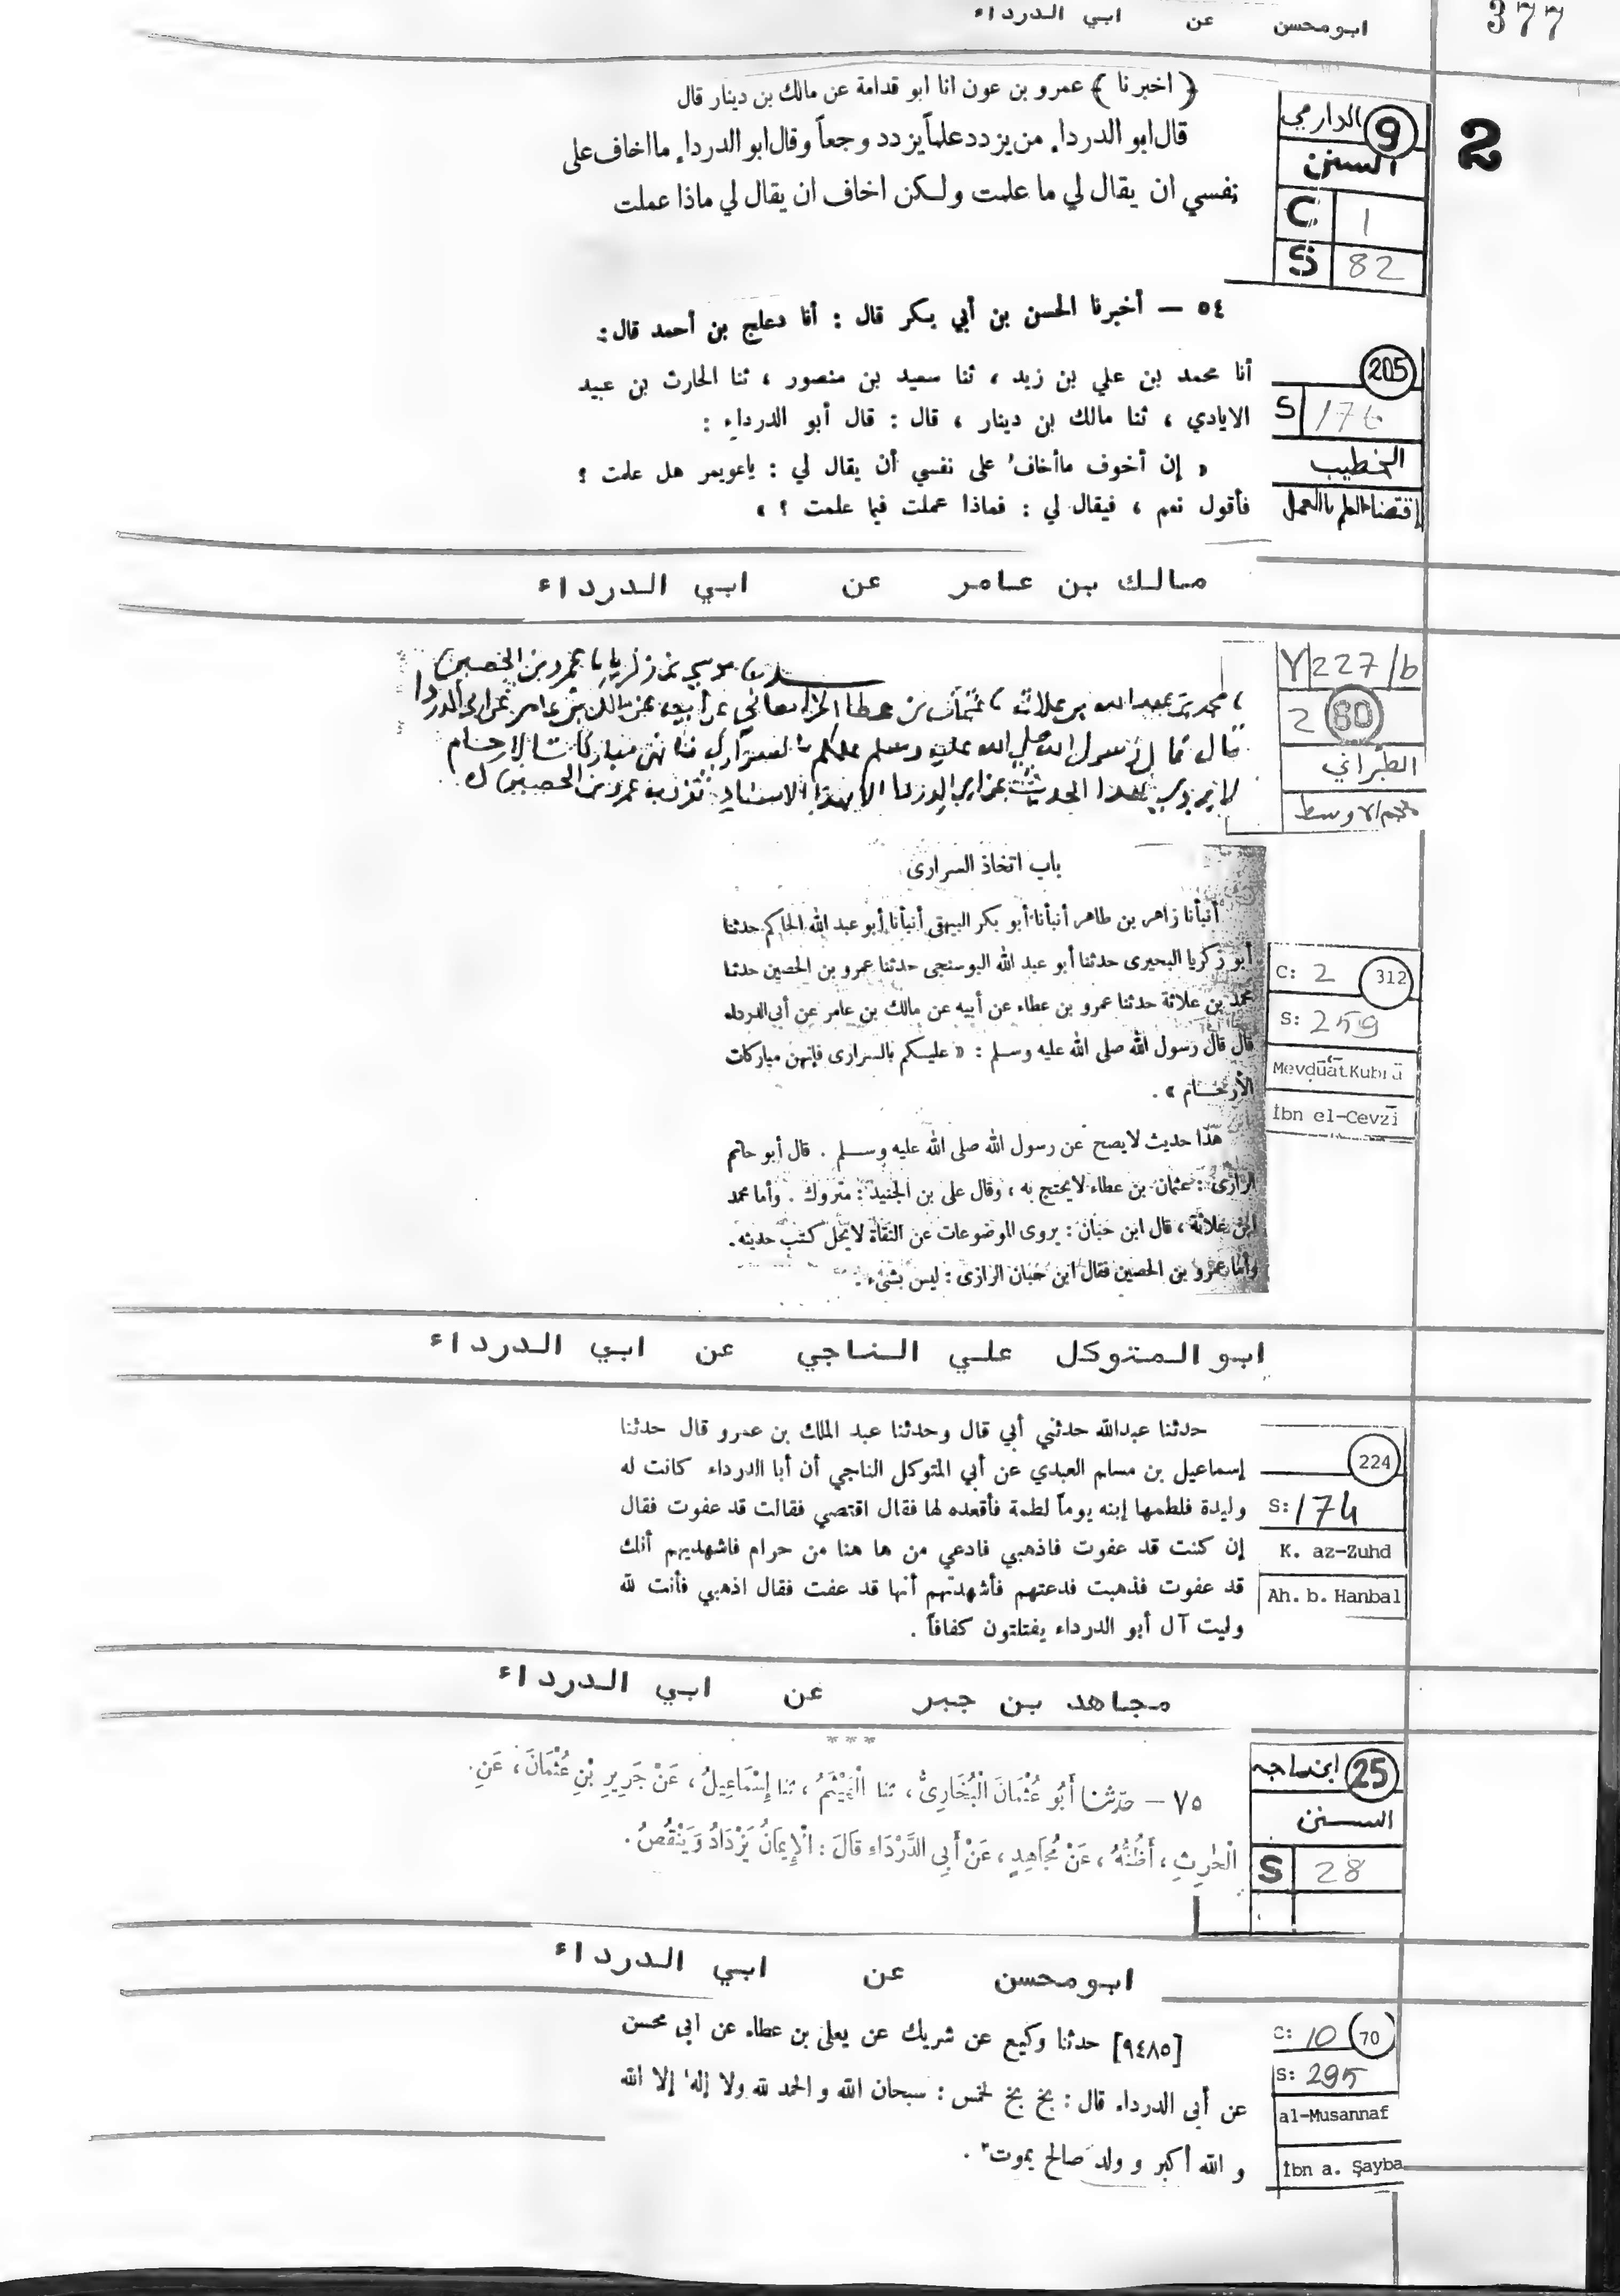 377
ابومحسن عن ابي الدرداء
2
﴿ اخبرنا ﴾ عمرو بن عون انا ابو قدامة عن مالك بن دينار قال
قال ابو الدرداء من يزدد علماً يزدد وجعاً وقال ابو الدرداء ما اخاف على
نفسي ان يقال لي ما علمت ولكن اخاف ان يقال لي ماذا عملت
الدارمي 9
السنن
C 1
S 82
٥٤ — أخبرنا الحسن بن أبي بكر قال : أنا دعلج بن أحمد قال :
أنا محمد بن علي بن زيد ، ثنا سعيد بن منصور ، ثنا الحارث بن عبيد
الايادي ، ثنا مالك بن دينار ، قال : قال أبو الدرداء :
« إن أخوف ماأخاف على نفسي أن يقال لي : ياعويمر هل علمت ؟
فأقول نعم ، فيقال لي : فماذا عملت فيما علمت ؟ »
205
S 176
الخطيب
اقتضاء العلم بالعمل
مالك بن عامر عن ابي الدرداء
محمد بن عبد الله بن علاثة عثمان بن عطا الخراساني عن ابيه عن مالك بن عامر عن ابي الدردا
قال قال رسول الله صلى الله عليه وسلم عليكم بالسراري فانهن مباركات الارحام
لا يروى هذا الحديث عن ابي الدردا الا بهذا الاسناد تفرد به عمرو بن الحصين
Y 227/b
2 80
الطبراني
معجم الاوسط
باب اتخاذ السرارى
أنبأنا زاهر بن طاهر أنبأنا أبو بكر البيهقى أنبأنا أبو عبد الله الحاكم حدثنا
أبو زكريا البحيرى حدثنا أبو عبد الله البوسنجى حدثنا عمرو بن الحصين حدثنا
محمد بن علاثة حدثنا عمرو بن عطاء عن أبيه عن مالك بن عامر عن أبى الدرداء
قال قال رسول الله صلى الله عليه وسلم : « عليكم بالسرارى فإنهن مباركات
الأرحام » .
هذا حديث لايصح عن رسول الله صلى الله عليه وسلم . قال أبو حاتم
الرازى : عثمان بن عطاء لايحتج به ، وقال على بن الجنيد : متروك . وأما محمد
ابن علاثة ، قال ابن حبان : يروى الموضوعات عن الثقاة لايحل كتب حديثه .
وأما عمرو بن الحصين فقال ابن حبان الرازى : ليس بشىء .
C: 2 312
S: 259
Mevḍūāt Kubrā
İbn el-Cevzī
ابو المتوكل علي الناجي عن ابي الدرداء
حدثنا عبدالله حدثني أبي قال وحدثنا عبد الملك بن عمرو قال حدثنا
إسماعيل بن مسلم العبدي عن أبي المتوكل الناجي أن أبا الدرداء كانت له
وليدة فلطمها إبنه يوماً لطمة فأقعده لها فقال اقتصي فقالت قد عفوت فقال
إن كنت قد عفوت فاذهبي فادعي من ها هنا من حرام فاشهديهم أنك
قد عفوت فذهبت فدعتهم فأشهدتهم أنها قد عفت فقال اذهبي فأنت لله
وليت آل أبو الدرداء يفتلتون كفافاً .
224
S: 174
K. az-Zuhd
Ah. b. Hanbal
مجاهد بن جبر عن ابي الدرداء
***
٧٥ — حدّثنا أَبُو عُثْمَانَ الْبُخَارِيُّ ، ثنا الْهَيْثَمُ ، ثنا إِسْمَاعِيلُ ، عَنْ جَرِيرِ بْنِ عُثْمَانَ ، عَنِ
الْحٰرِثِ ، أَظُنُّهُ ، عَنْ مُجَاهِدٍ ، عَنْ أَبِى الدَّرْدَاءِ قَالَ : الْإِيمَانُ يَزْدَادُ وَيَنْقُصُ .
ابن ماجه 25
السنن
S 28
ابو محسن عن ابي الدرداء
[٩٤٨٥] حدثنا وكيع عن شريك عن يعلى بن عطاء عن ابى محسن
عن أبى الدرداء قال : بخ بخ لخمس : سبحان الله و الحمد لله ولا إله إلا الله
و الله أكبر و ولد صالح يموت٢ .
C: 10 70
S: 295
al-Musannaf
İbn a. Şayba